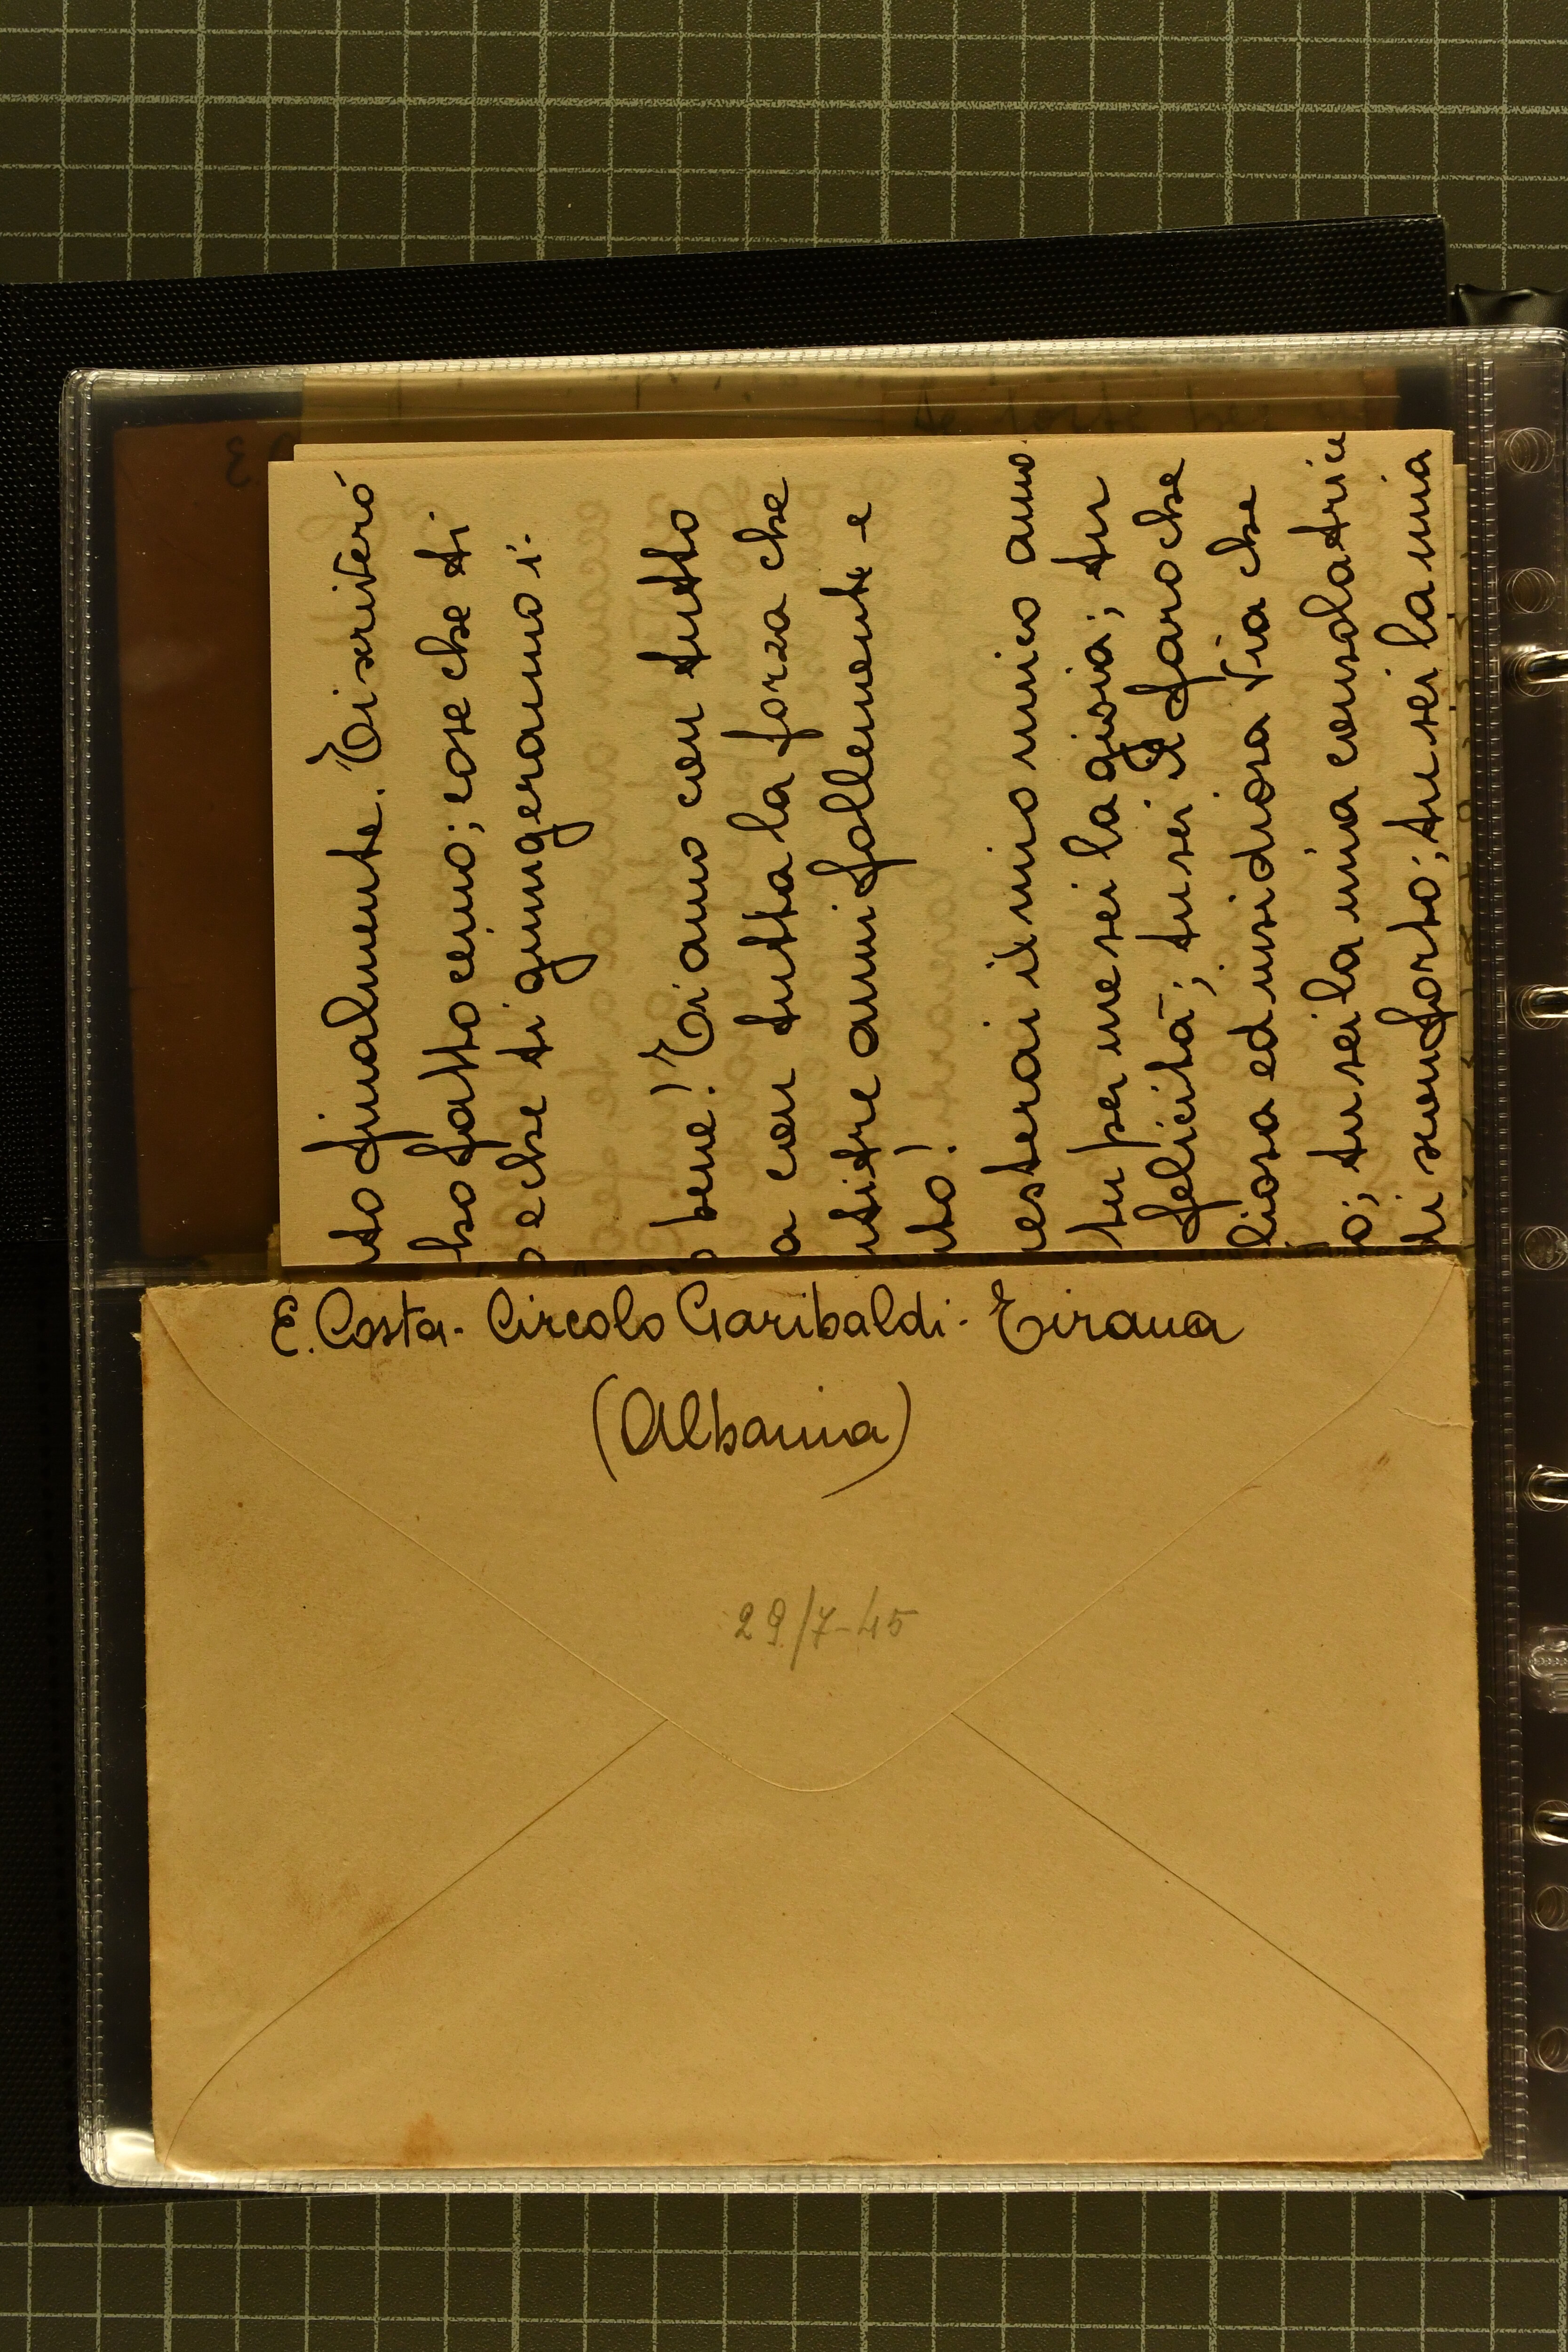 to finalmente. Ti scriverò
ho fatto cenno; cose che ti
e che ti giungeranno i-
bene! Ti amo con tutto
a con tutta la forza che
istre anni follemente e
to!
esterai il mio unico amo
tu per me sei la gioia; tu
felicità; tu sei il faro che
liosa ed insidiosa via che
o; tu sei la mia consolatrice
di sconforto; tu sei la mia
E. Costa - Circolo Garibaldi - Tirana
(Albania)
29/7-45